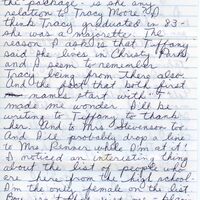 the package - is she any
relation to Tracy Moore? I
think Tracy graduated in 83 -
she was a majorette. The
reason I ask is that Tiffany
said she lives in Christy Park
and I seem to remember
Tracy being from there also.
And the fact that both first
names start with T
made me wonder. I'll be
writing to Tiffany to thank
her. And to Mrs Stevenson too.
And I'll probably drop a line
to Mrs Penner while I'm at it!
I noticed an interesting thing
about the list of people who
are here from the high school.
I'm the only female on the list